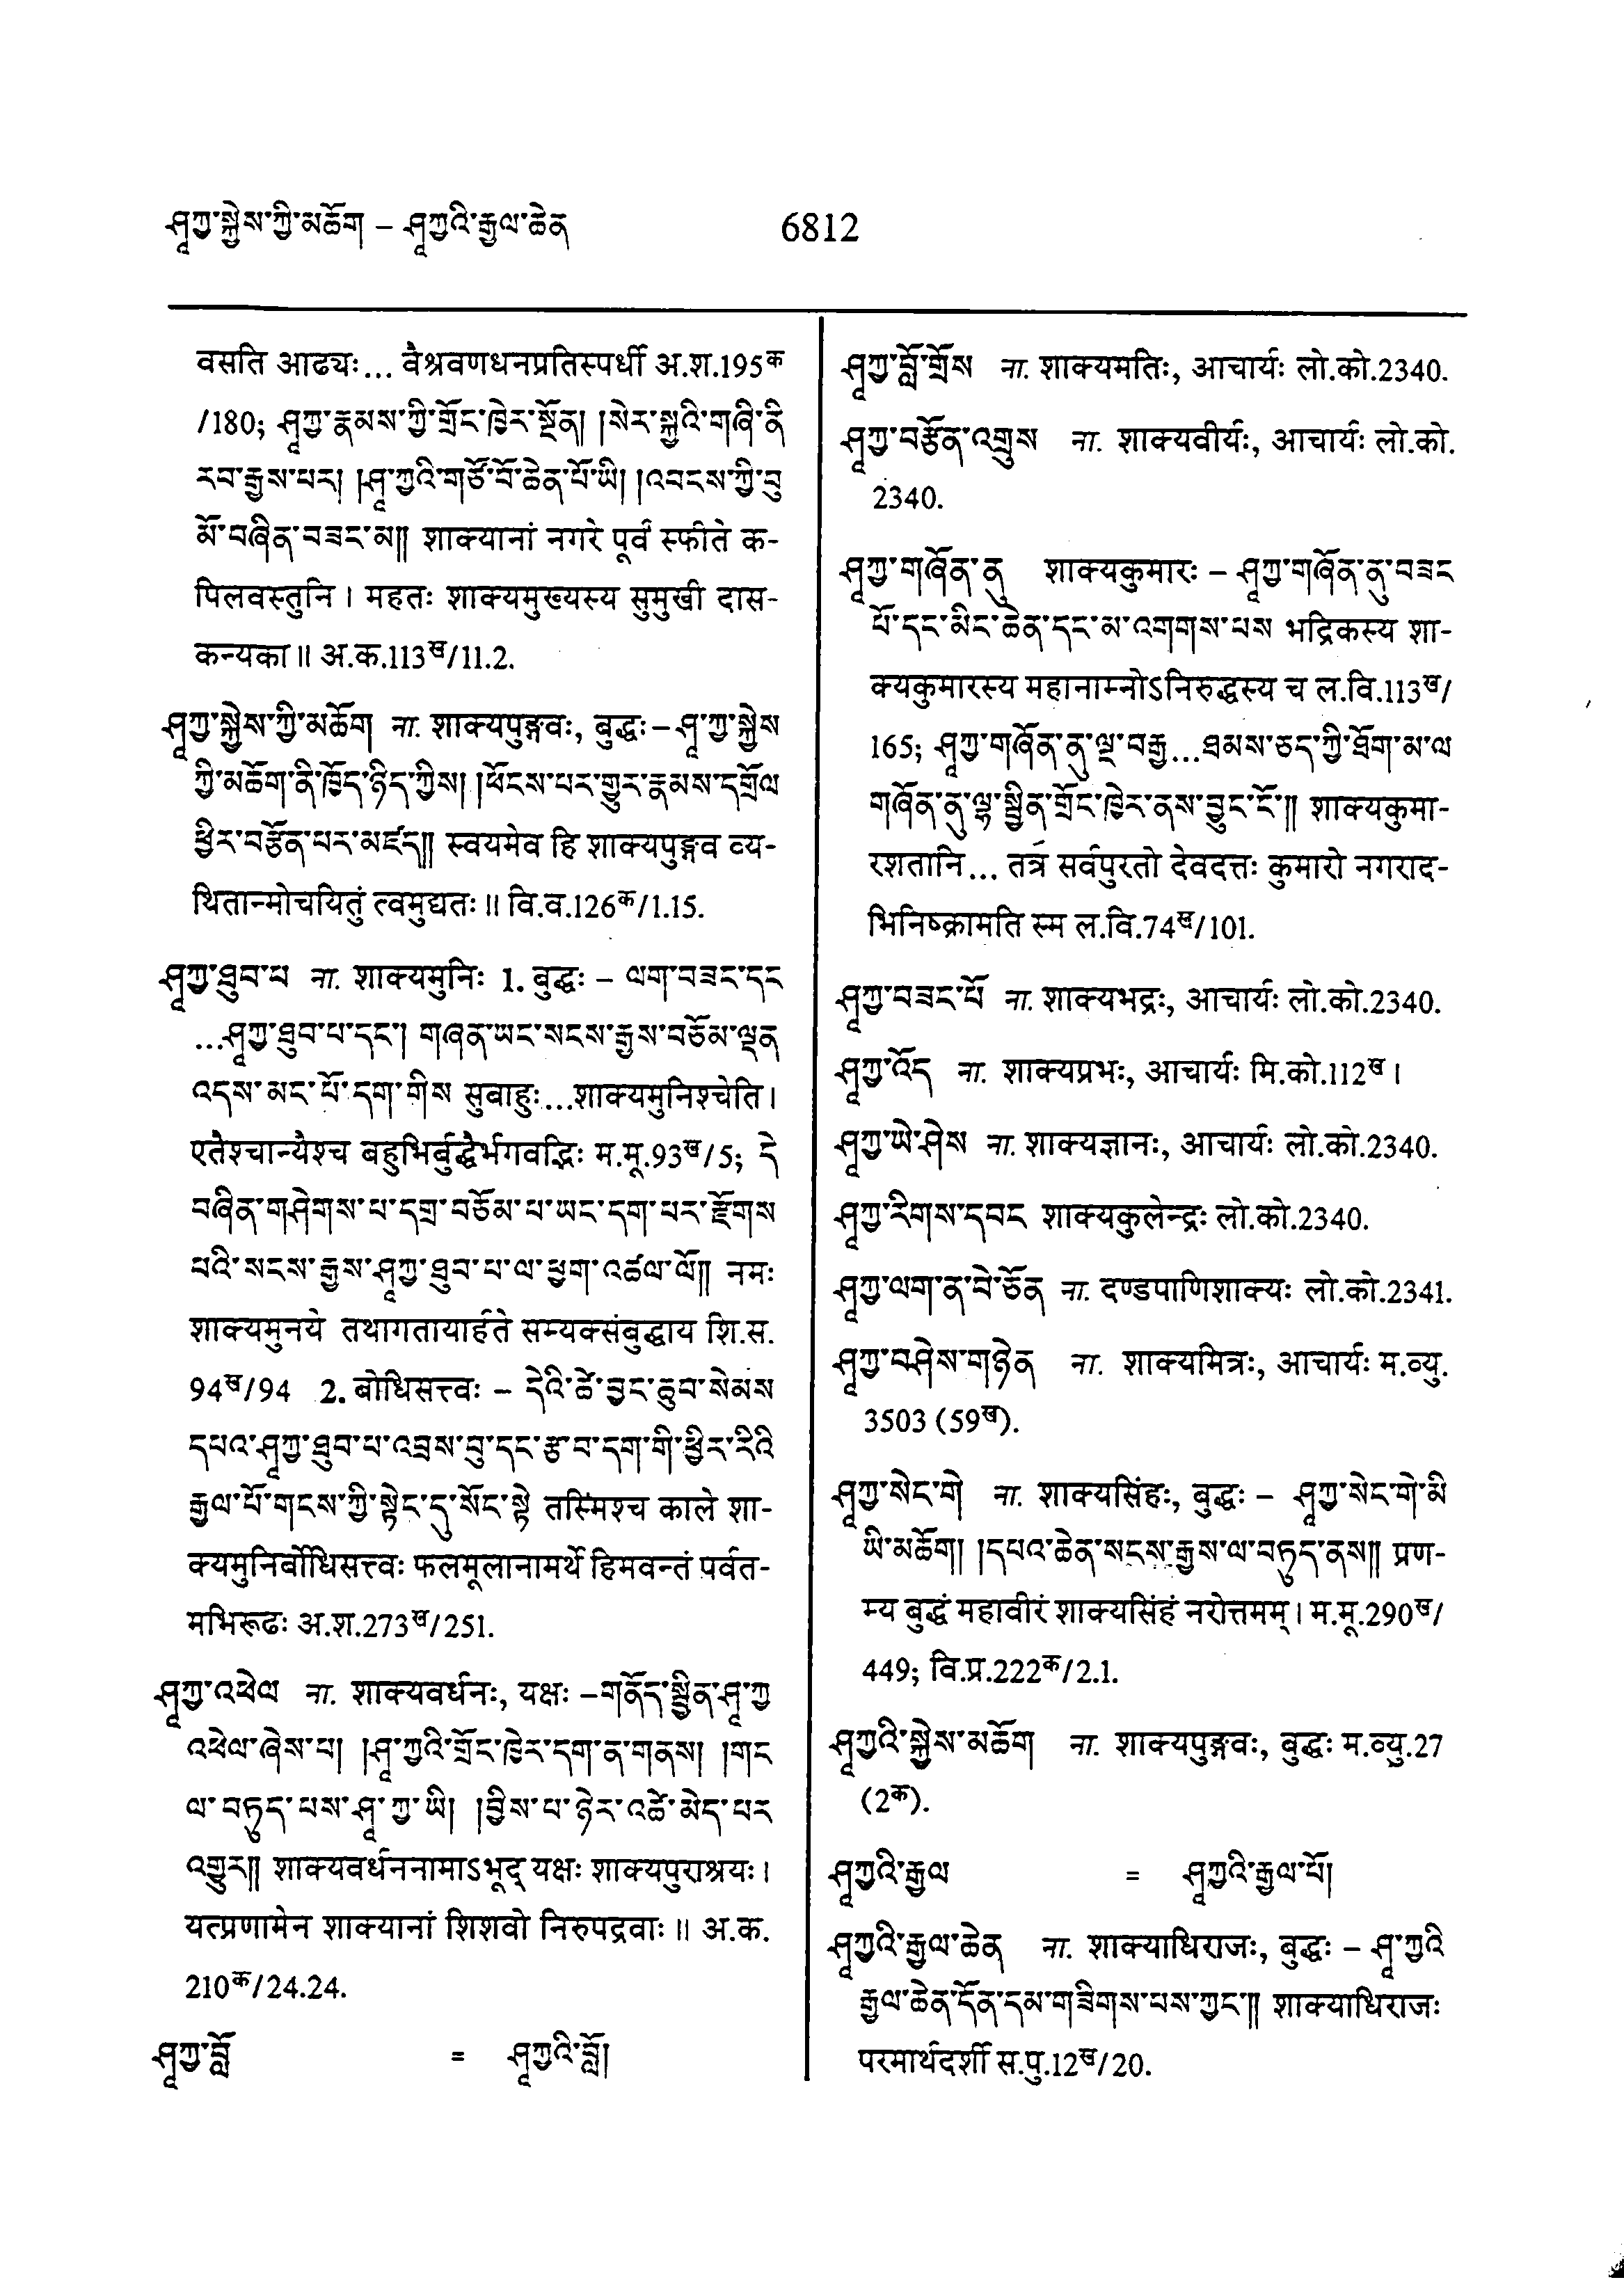 ཤཱཀྱ་སྐྱེས་ཀྱི་མཆོག – ཤཱཀྱའི་རྒྱལ་ཆེན
6812
वसति आढ्यः... वैश्रवणधनप्रतिस्पर्धी अ.श.195क
/180; ཤཱཀྱ་རྣམས་ཀྱི་གྲོང་ཁྱེར་སྔོན། །སེར་སྐྱའི་གཞི་ནི
རབ་རྒྱས་པར། །ཤཱ་ཀྱའི་གཙོ་བོ་ཆེན་པོ་ཡི། །འབངས་ཀྱི་བུ
མོ་བཞིན་བཟང་མ།། शाक्यानां नगरे पूर्वं स्फीते क-
पिलवस्तुनि । महतः शाक्यमुख्यस्य सुमुखी दास-
कन्यका ॥ अ.क.113ख/11.2.
ཤཱཀྱ་སྐྱེས་ཀྱི་མཆོག ना. शाक्यपुङ्गवः, बुद्धः – ཤཱ་ཀྱ་སྐྱེས
ཀྱི་མཆོག་ནི་ཁྱོད་ཉིད་ཀྱིས། །ཕོངས་པར་གྱུར་རྣམས་དགྲོལ
ཕྱིར་བརྩོན་པར་མཛད།། स्वयमेव हि शाक्यपुङ्गव व्य-
थितान्मोचयितुं त्वमुद्यतः ॥ वि.व.126क/1.15.
ཤཱཀྱ་ཐུབ་པ ना. शाक्यमुनिः 1. बुद्धः – ལག་བཟང་དང
...ཤཱཀྱ་ཐུབ་པ་དང་། གཞན་ཡང་སངས་རྒྱས་བཅོམ་ལྡན
འདས་མང་པོ་དག་གིས सुबाहुः...शाक्यमुनिश्चेति ।
एतैश्चान्यैश्च बहुभिर्बुद्धैर्भगवद्भिः म.मू.93ख/5; དེ
བཞིན་གཤེགས་པ་དགྲ་བཅོམ་པ་ཡང་དག་པར་རྫོགས
པའི་སངས་རྒྱས་ཤཱཀྱ་ཐུབ་པ་ལ་ཕྱག་འཚལ་ལོ།། नमः
शाक्यमुनये तथागतायार्हते सम्यक्संबुद्धाय शि.स.
94ख/94 2. बोधिसत्त्वः – དེའི་ཚེ་བྱང་ཆུབ་སེམས
དཔའ་ཤཱཀྱ་ཐུབ་པ་འབྲས་བུ་དང་རྩ་བ་དག་གི་ཕྱིར་རིའི
རྒྱལ་པོ་གངས་ཀྱི་སྟེང་དུ་སོང་སྟེ तस्मिंश्च काले शा-
क्यमुनिर्बोधिसत्त्वः फलमूलानामर्थे हिमवन्तं पर्वत-
मभिरूढः अ.श.273ख/251.
ཤཱཀྱ་འཕེལ ना. शाक्यवर्धनः, यक्षः – གནོད་སྦྱིན་ཤཱ་ཀྱ
འཕེལ་ཞེས་པ། །ཤཱ་ཀྱའི་གྲོང་ཁྱེར་དག་ན་གནས། །གང
ལ་བཏུད་པས་ཤཱ་ཀྱ་ཡི། །བྱིས་པ་ཉེར་འཚེ་མེད་པར
འགྱུར།། शाक्यवर्धननामाऽभूद् यक्षः शाक्यपुराश्रयः ।
यत्प्रणामेन शाक्यानां शिशवो निरुपद्रवाः ॥ अ.क.
210क/24.24.
ཤཱཀྱ་བློ = ཤཱཀྱའི་བློ།
ཤཱཀྱ་བློ་གྲོས ना. शाक्यमतिः, आचार्यः लो.को.2340.
ཤཱཀྱ་བརྩོན་འགྲུས ना. शाक्यवीर्यः, आचार्यः लो.को.
2340.
ཤཱཀྱ་གཞོན་ནུ शाक्यकुमारः – ཤཱཀྱ་གཞོན་ནུ་བཟང
པོ་དང་མིང་ཆེན་དང་མ་འགགས་པས भद्रिकस्य शा-
क्यकुमारस्य महानाम्नोऽनिरुद्धस्य च ल.वि.113ख/
165; ཤཱཀྱ་གཞོན་ནུ་ལྔ་བརྒྱ...ཐམས་ཅད་ཀྱི་ཐོག་མ་ལ
གཞོན་ནུ་ལྷ་སྦྱིན་གྲོང་ཁྱེར་ནས་བྱུང་ངོ་།། शाक्यकुमा-
रशतानि... तत्र सर्वपुरतो देवदत्तः कुमारो नगराद-
भिनिष्क्रामति स्म ल.वि.74ख/101.
ཤཱཀྱ་བཟང་པོ ना. शाक्यभद्रः, आचार्यः लो.को.2340.
ཤཱཀྱ་འོད ना. शाक्यप्रभः, आचार्यः मि.को.112ख ।
ཤཱཀྱ་ཡེ་ཤེས ना. शाक्यज्ञानः, आचार्यः लो.को.2340.
ཤཱཀྱ་རིགས་དབང शाक्यकुलेन्द्रः लो.को.2340.
ཤཱཀྱ་ལག་ན་བེ་ཅོན ना. दण्डपाणिशाक्यः लो.को.2341.
ཤཱཀྱ་བཤེས་གཉེན ना. शाक्यमित्रः, आचार्यः म.व्यु.
3503 (59ख).
ཤཱཀྱ་སེང་གེ ना. शाक्यसिंहः, बुद्धः – ཤཱཀྱ་སེང་གེ་མི
ཡི་མཆོག། །དཔའ་ཆེན་སངས་རྒྱས་ལ་བཏུད་ནས།། प्रण-
म्य बुद्धं महावीरं शाक्यसिंहं नरोत्तमम् । म.मू.290ख/
449; वि.प्र.222क/2.1.
ཤཱཀྱའི་སྐྱེས་མཆོག ना. शाक्यपुङ्गवः, बुद्धः म.व्यु.27
(2क).
ཤཱཀྱའི་རྒྱལ = ཤཱཀྱའི་རྒྱལ་པོ།
ཤཱཀྱའི་རྒྱལ་ཆེན ना. शाक्याधिराजः, बुद्धः – ཤཱ་ཀྱའི
རྒྱལ་ཆེན་དོན་དམ་གཟིགས་པས་ཀྱང་།། शाक्याधिराजः
परमार्थदर्शी स.पु.12ख/20.